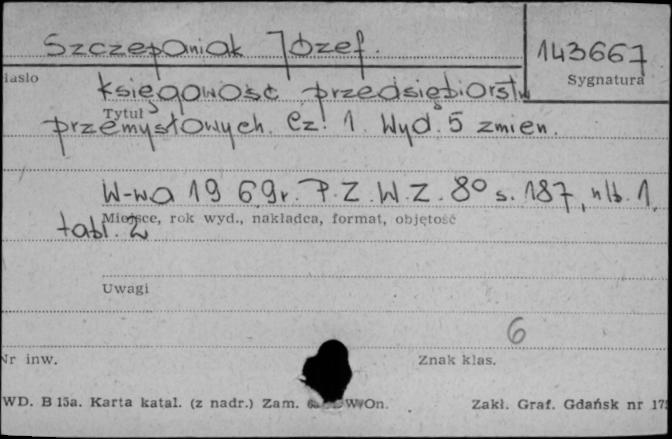 Szczepaniak Józef.
143667
Sygnatura
iasło
Księgowość przedsiębiorstw
Tytuł
przemysłowych. Cz. 1. Wyd. 5 zmien.
W-wa 1969r. P.Z.W.Z. 8° s. 187, nlb. 1,
Miejsce, rok wyd., nakładca, format, objętość
tabl. 2
Uwagi
6
Nr inw.
Znak klas.
WD. B 15a. Karta katal. (z nadr.) Zam. WOn.
Zakł. Graf. Gdańsk nr